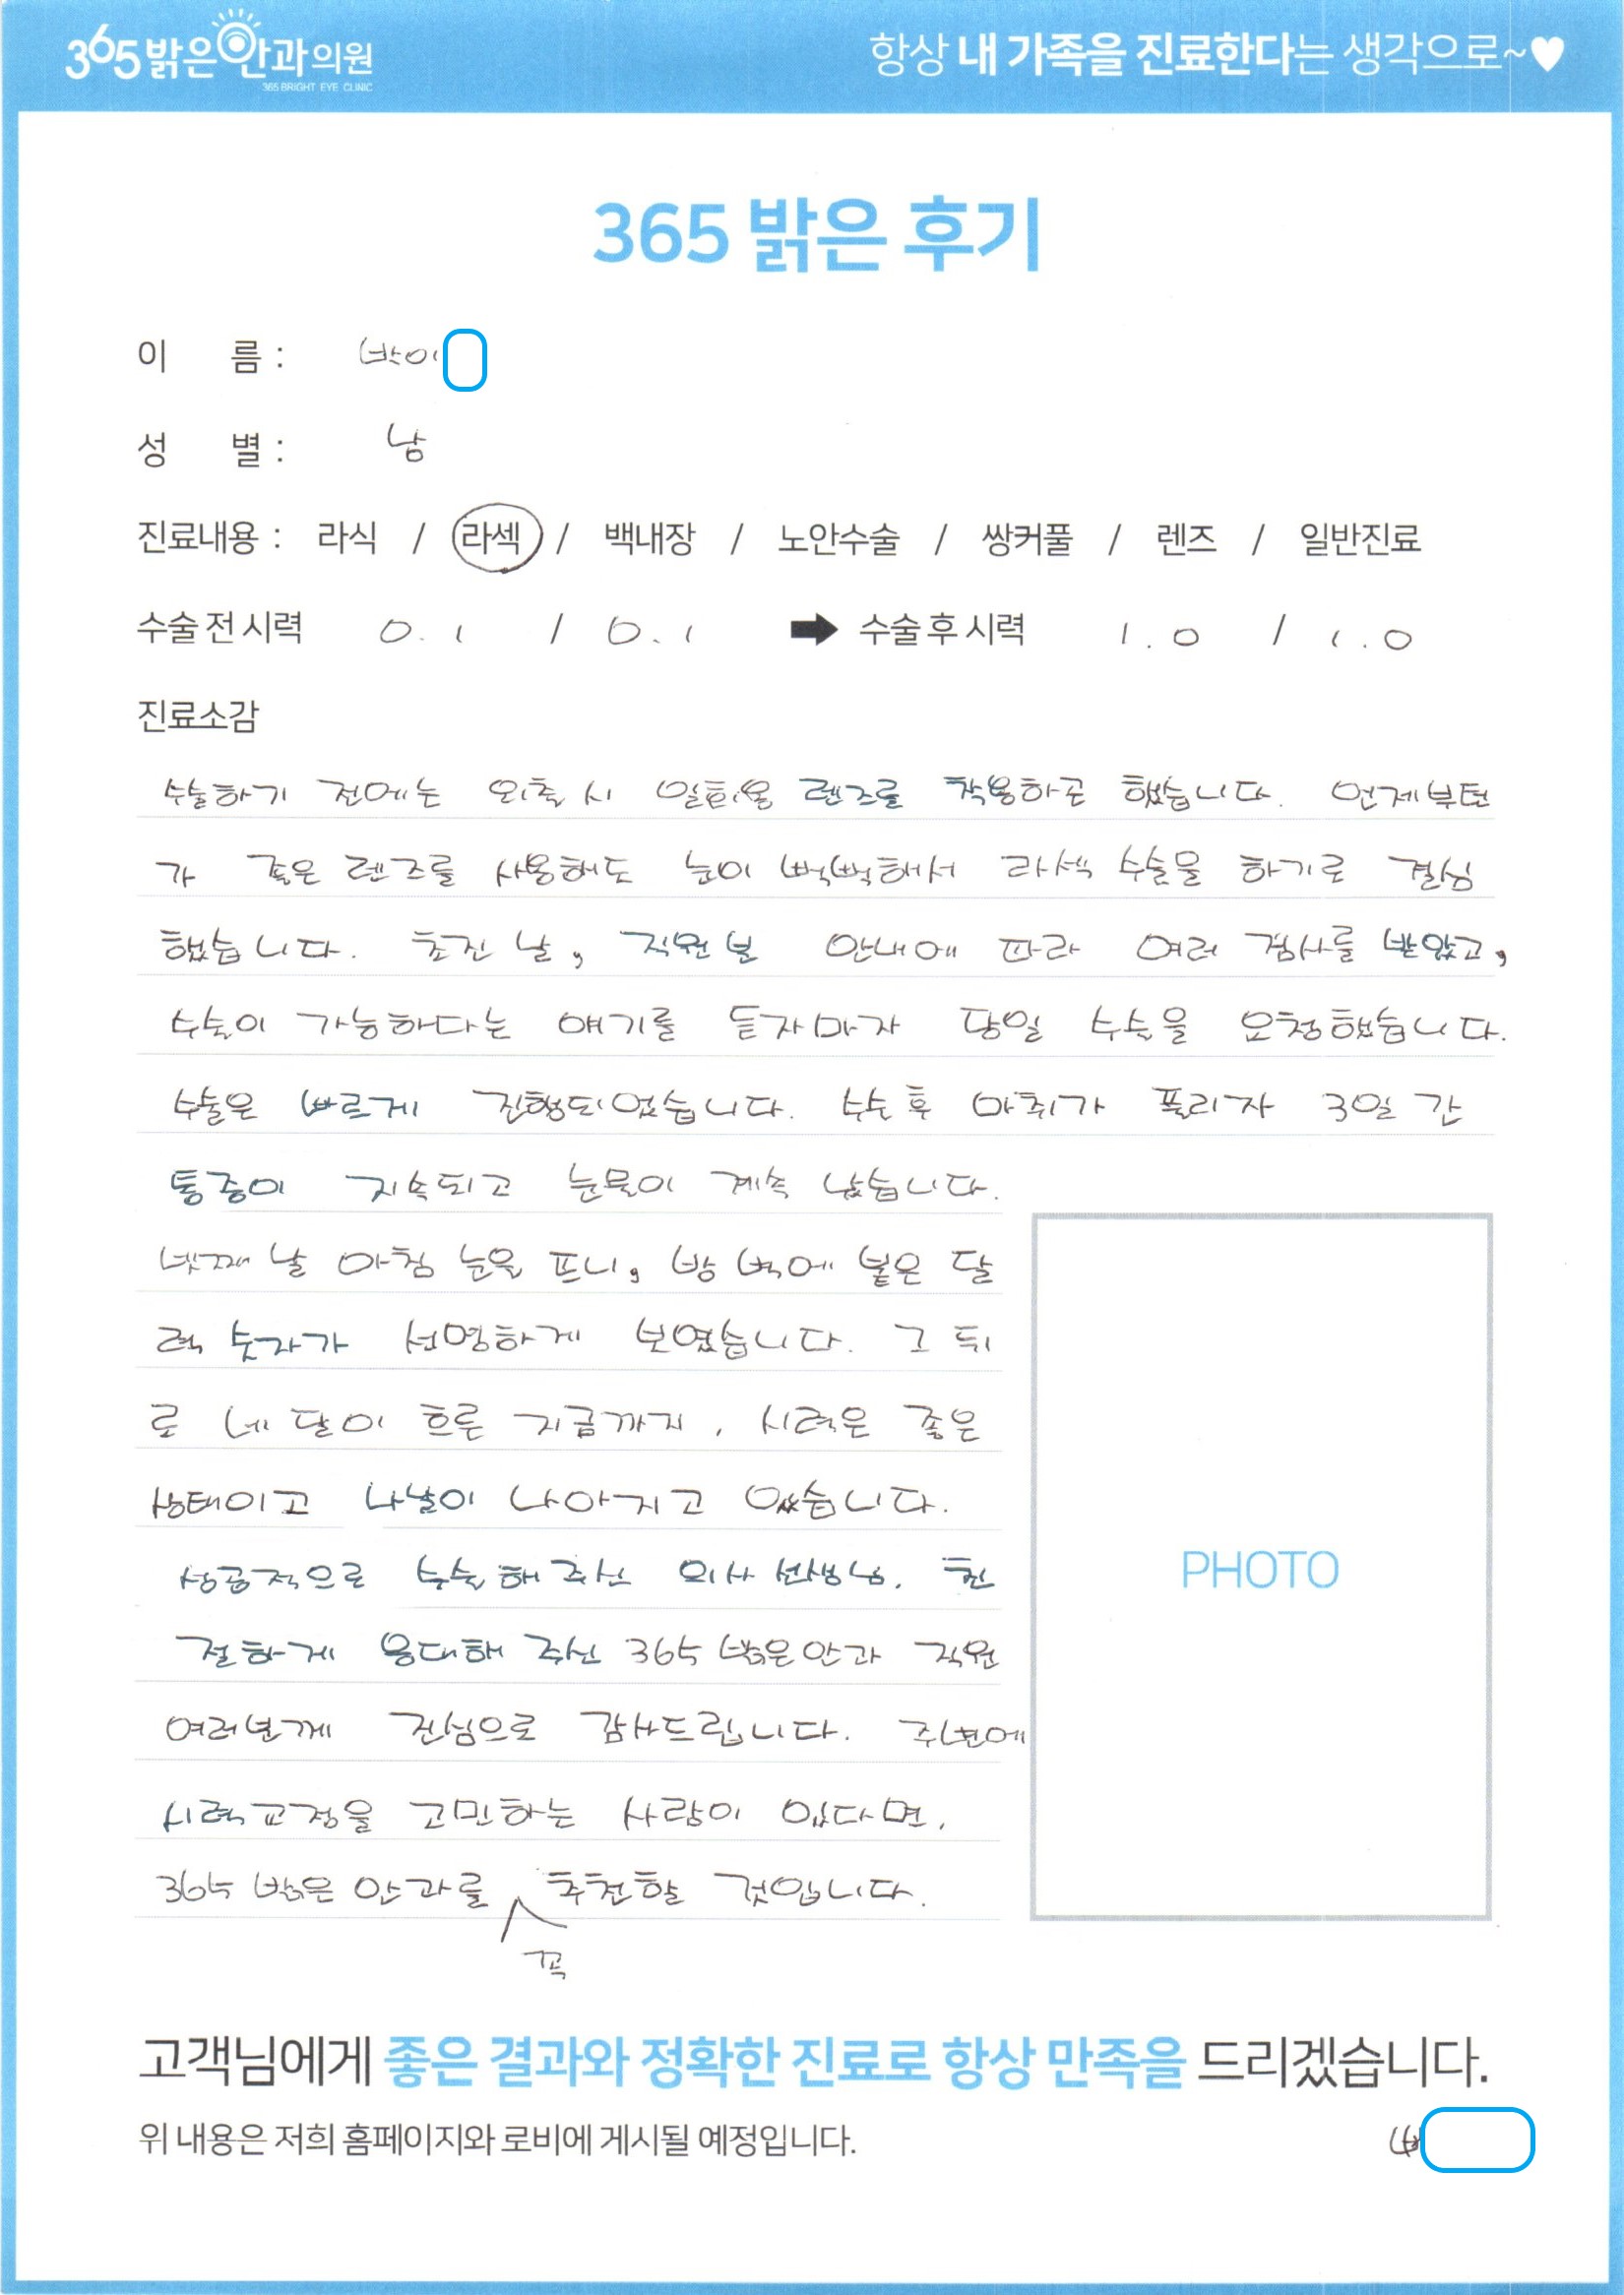 365밝은안과의원
365 BRIGHT EYE CLINIC
항상 내 가족을 진료한다는 생각으로~♥
365 밝은 후기
이 름 : 박이
성 별 : 남
진료내용 : 라식 / 라섹 / 백내장 / 노안수술 / 쌍커풀 / 렌즈 / 일반진료
수술 전 시력 0.1 / 0.1 ➡ 수술 후 시력 1.0 / 1.0
진료소감
수술하기 전에는 외출 시 일회용 렌즈를 착용하곤 했습니다. 언제부턴
가 좋은 렌즈를 사용해도 눈이 뻑뻑해서 라섹 수술을 하기로 결심
했습니다. 초진 날, 직원 분 안내에 따라 여러 검사를 받았고,
수술이 가능하다는 얘기를 듣자마자 당일 수술을 요청했습니다.
수술은 빠르게 진행되었습니다. 수술 후 마취가 풀리자 3일 간
통증이 지속되고 눈물이 계속 났습니다.
넷째 날 아침 눈을 뜨니, 방 벽에 붙은 달
력 숫자가 선명하게 보였습니다. 그 뒤
로 네 달이 흐른 지금까지, 시력은 좋은
상태이고 나날이 나아지고 있습니다.
성공적으로 수술해 주신 의사 선생님, 친
절하게 응대해 주신 365 밝은안과 직원
여러분께 진심으로 감사드립니다. 주변에
시력교정을 고민하는 사람이 있다면,
365 밝은 안과를 추천할 것입니다.
꼭
PHOTO
고객님에게 좋은 결과와 정확한 진료로 항상 만족을 드리겠습니다.
위 내용은 저희 홈페이지와 로비에 게시될 예정입니다.